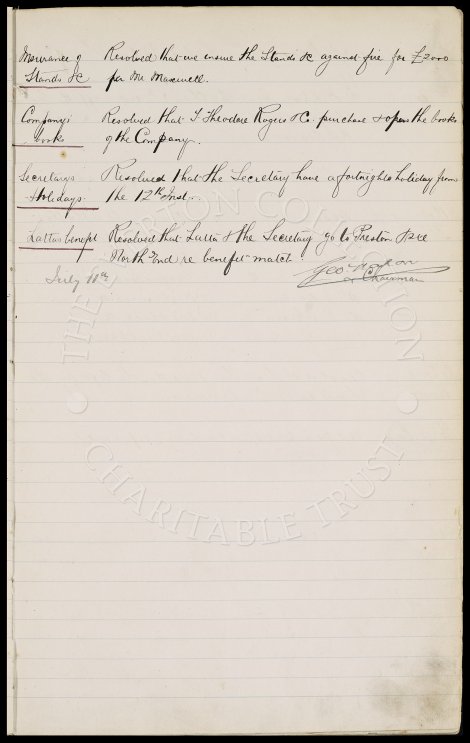 Insurance of Resolved that we insure the Stands &c against fire for £2000
Stands &c per Mr Maxwell.
Company's Resolved that T Theodore Rogers & C. purchase & open the books
books of the Company.
Secretarys Resolved that the Secretary have a fortnights holiday from
Holidays. the 12th Inst.
Lattas benefit Resolved that Latta & the Secretary go to Preston &
North End re benefit match
July
Geo
Chairman
THE EVERTON COLLECTION
CHARITABLE TRUST